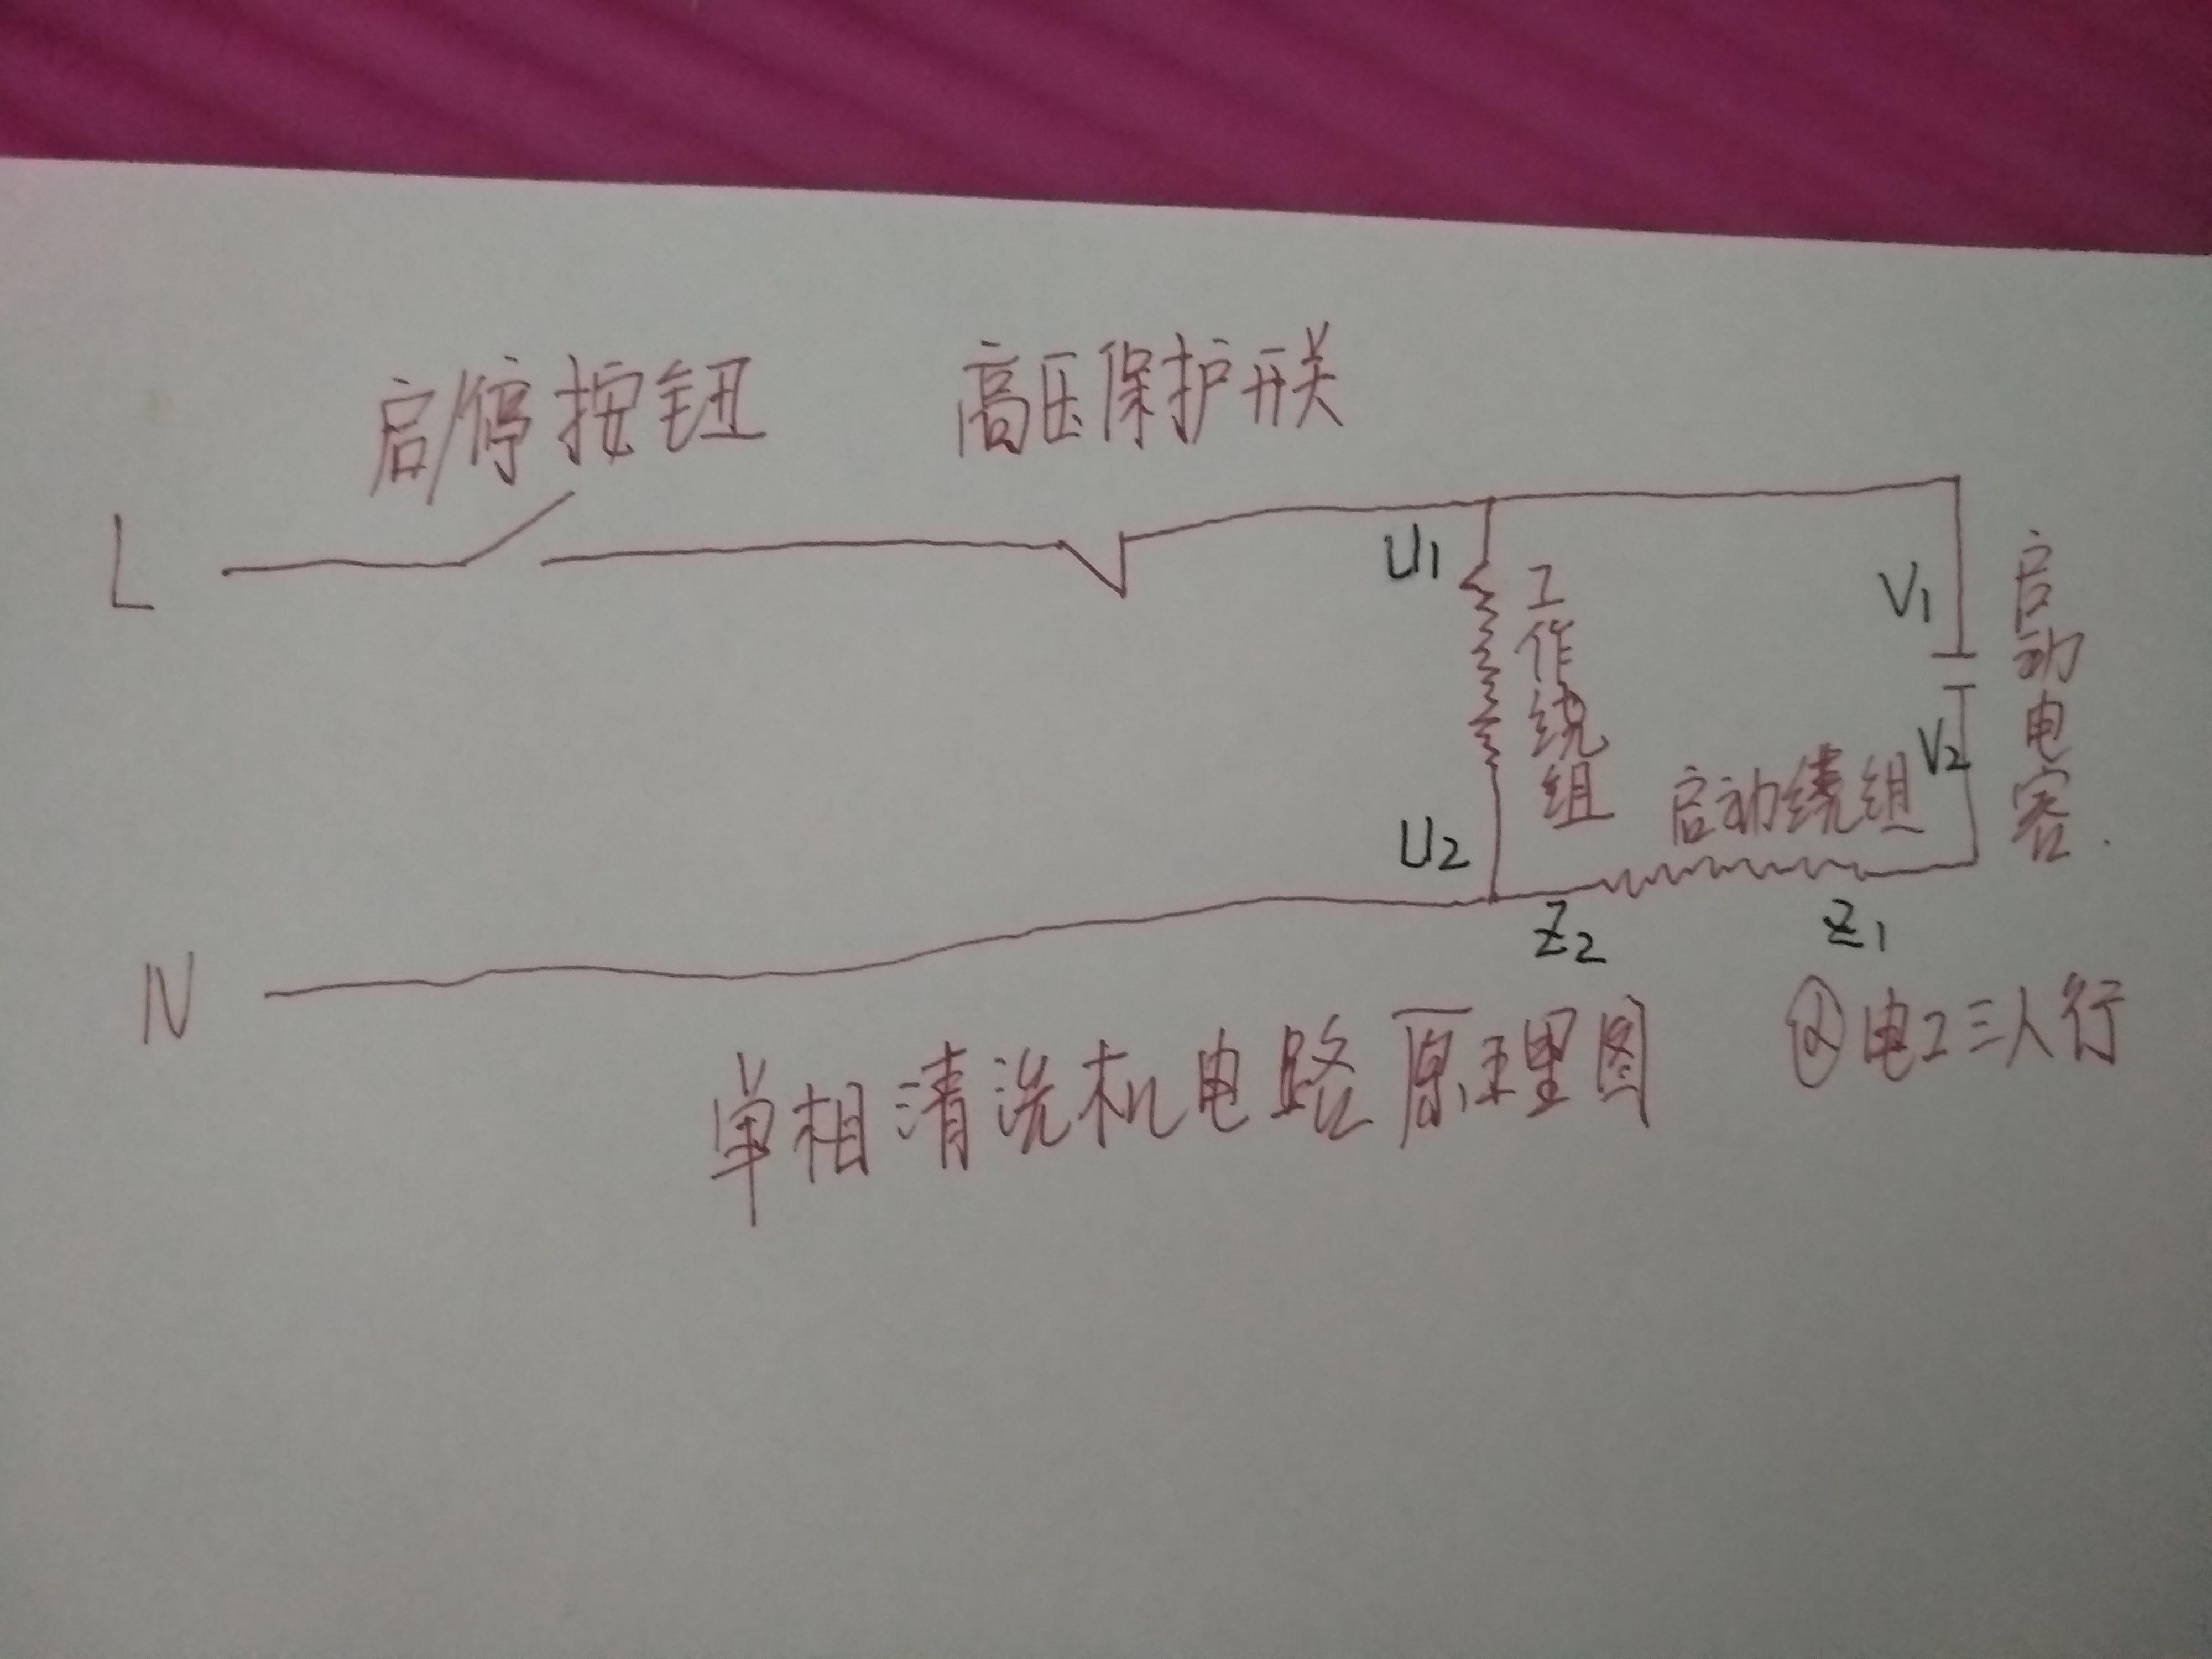 启/停按钮
高压保护开关
L
U1
工作绕组
V1
启动电容
V2
启动绕组
U2
Z2
Z1
N
单相清洗机电路原理图
电工三人行